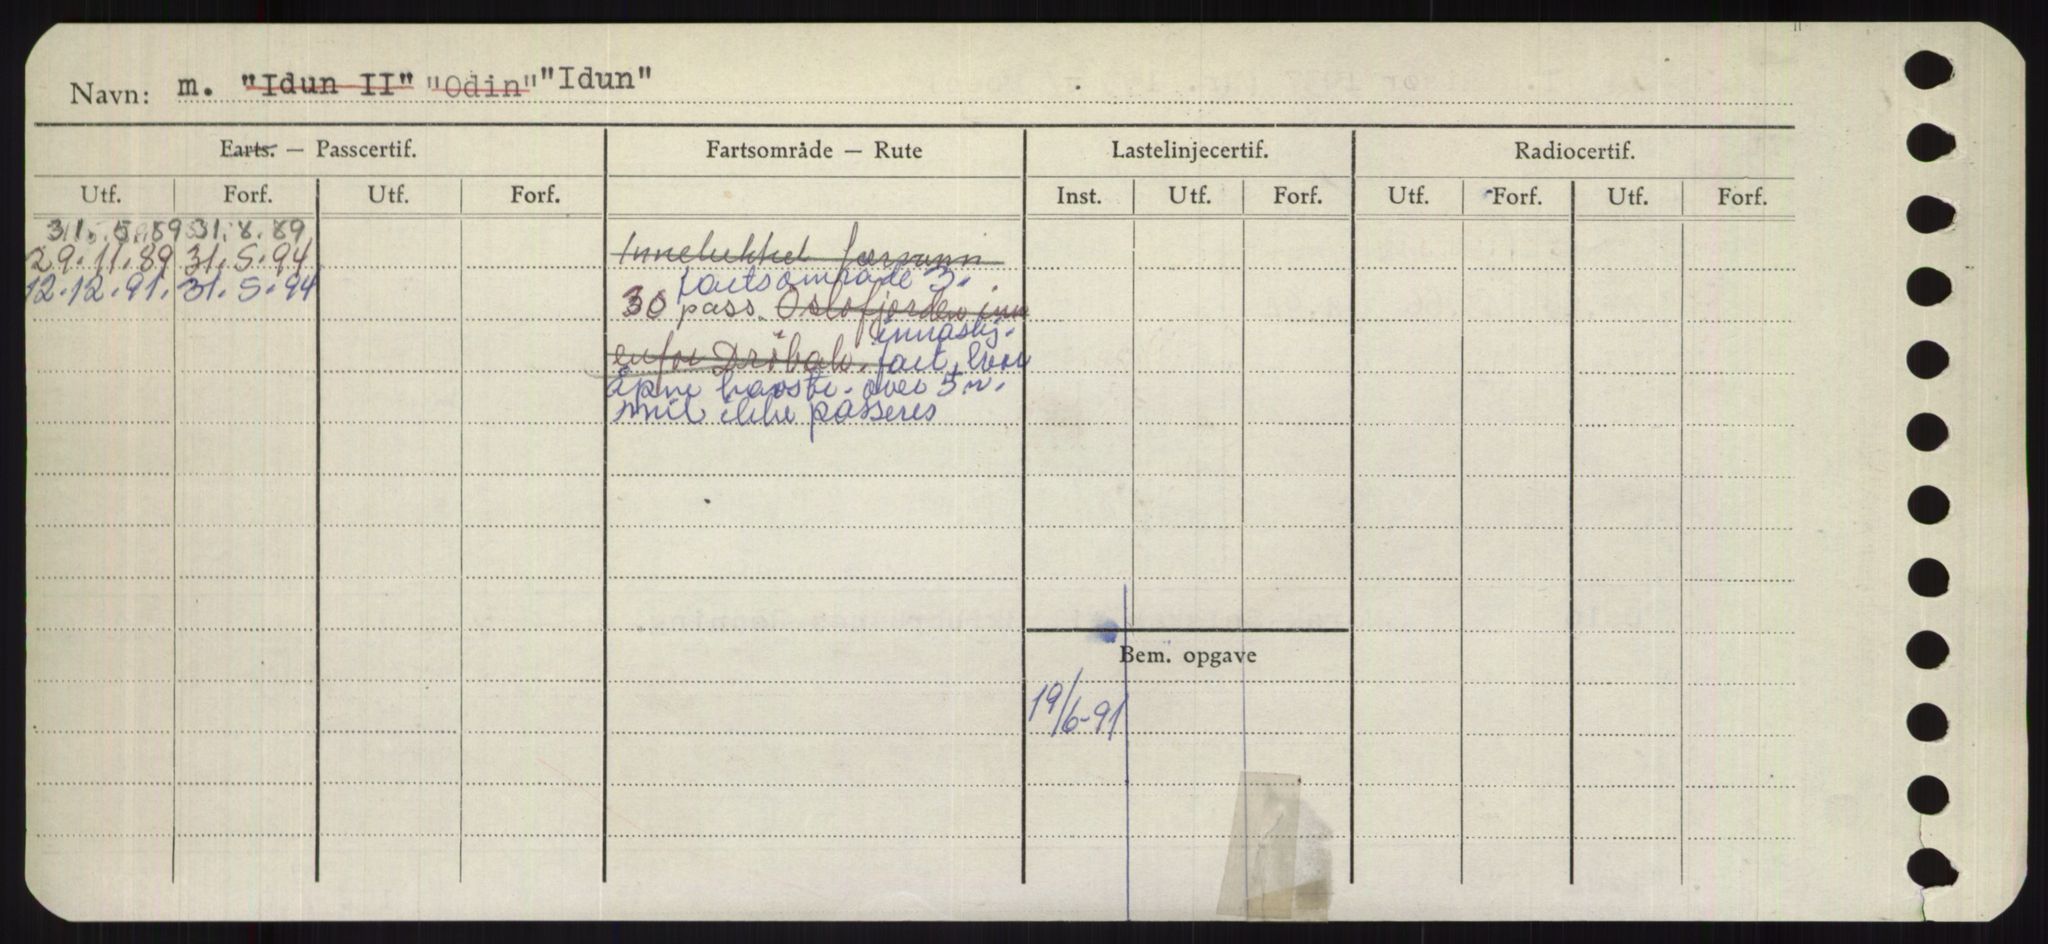 Navn: m. "Idun II" "Odin" "Idun"
Farts. — Passcertif. Fartsområde — Rute Lastelinjecertif. Radiocertif.
Utf. Forf. Utf. Forf. Inst. Utf. Forf. Utf. Forf. Utf. Forf.
31.5.89 31.8.89
29.11.89 31.5.94 Innelukket farvann
12.12.91. 31.5.94 fartsområde 3.
30 pass. Oslofjorden inn
innaskj.
enfor Drøbak. fart, hvor
åpne havstr. over 5 n.
mil ikke passeres
Bem. opgave
19/6-91